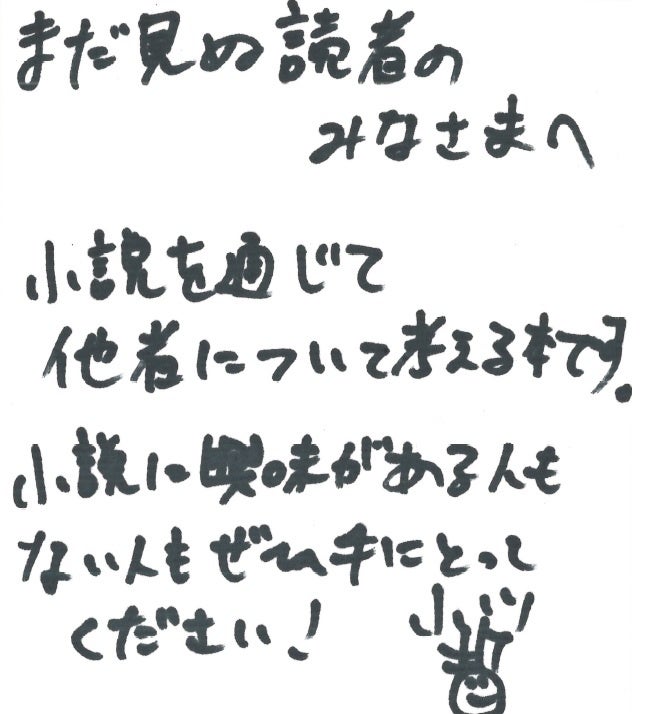 まだ見ぬ読者の
みなさまへ
小説を通じて
他者について考える本です。
小説に興味がある人も
ない人もぜひ手にとって
ください!
小川
哲